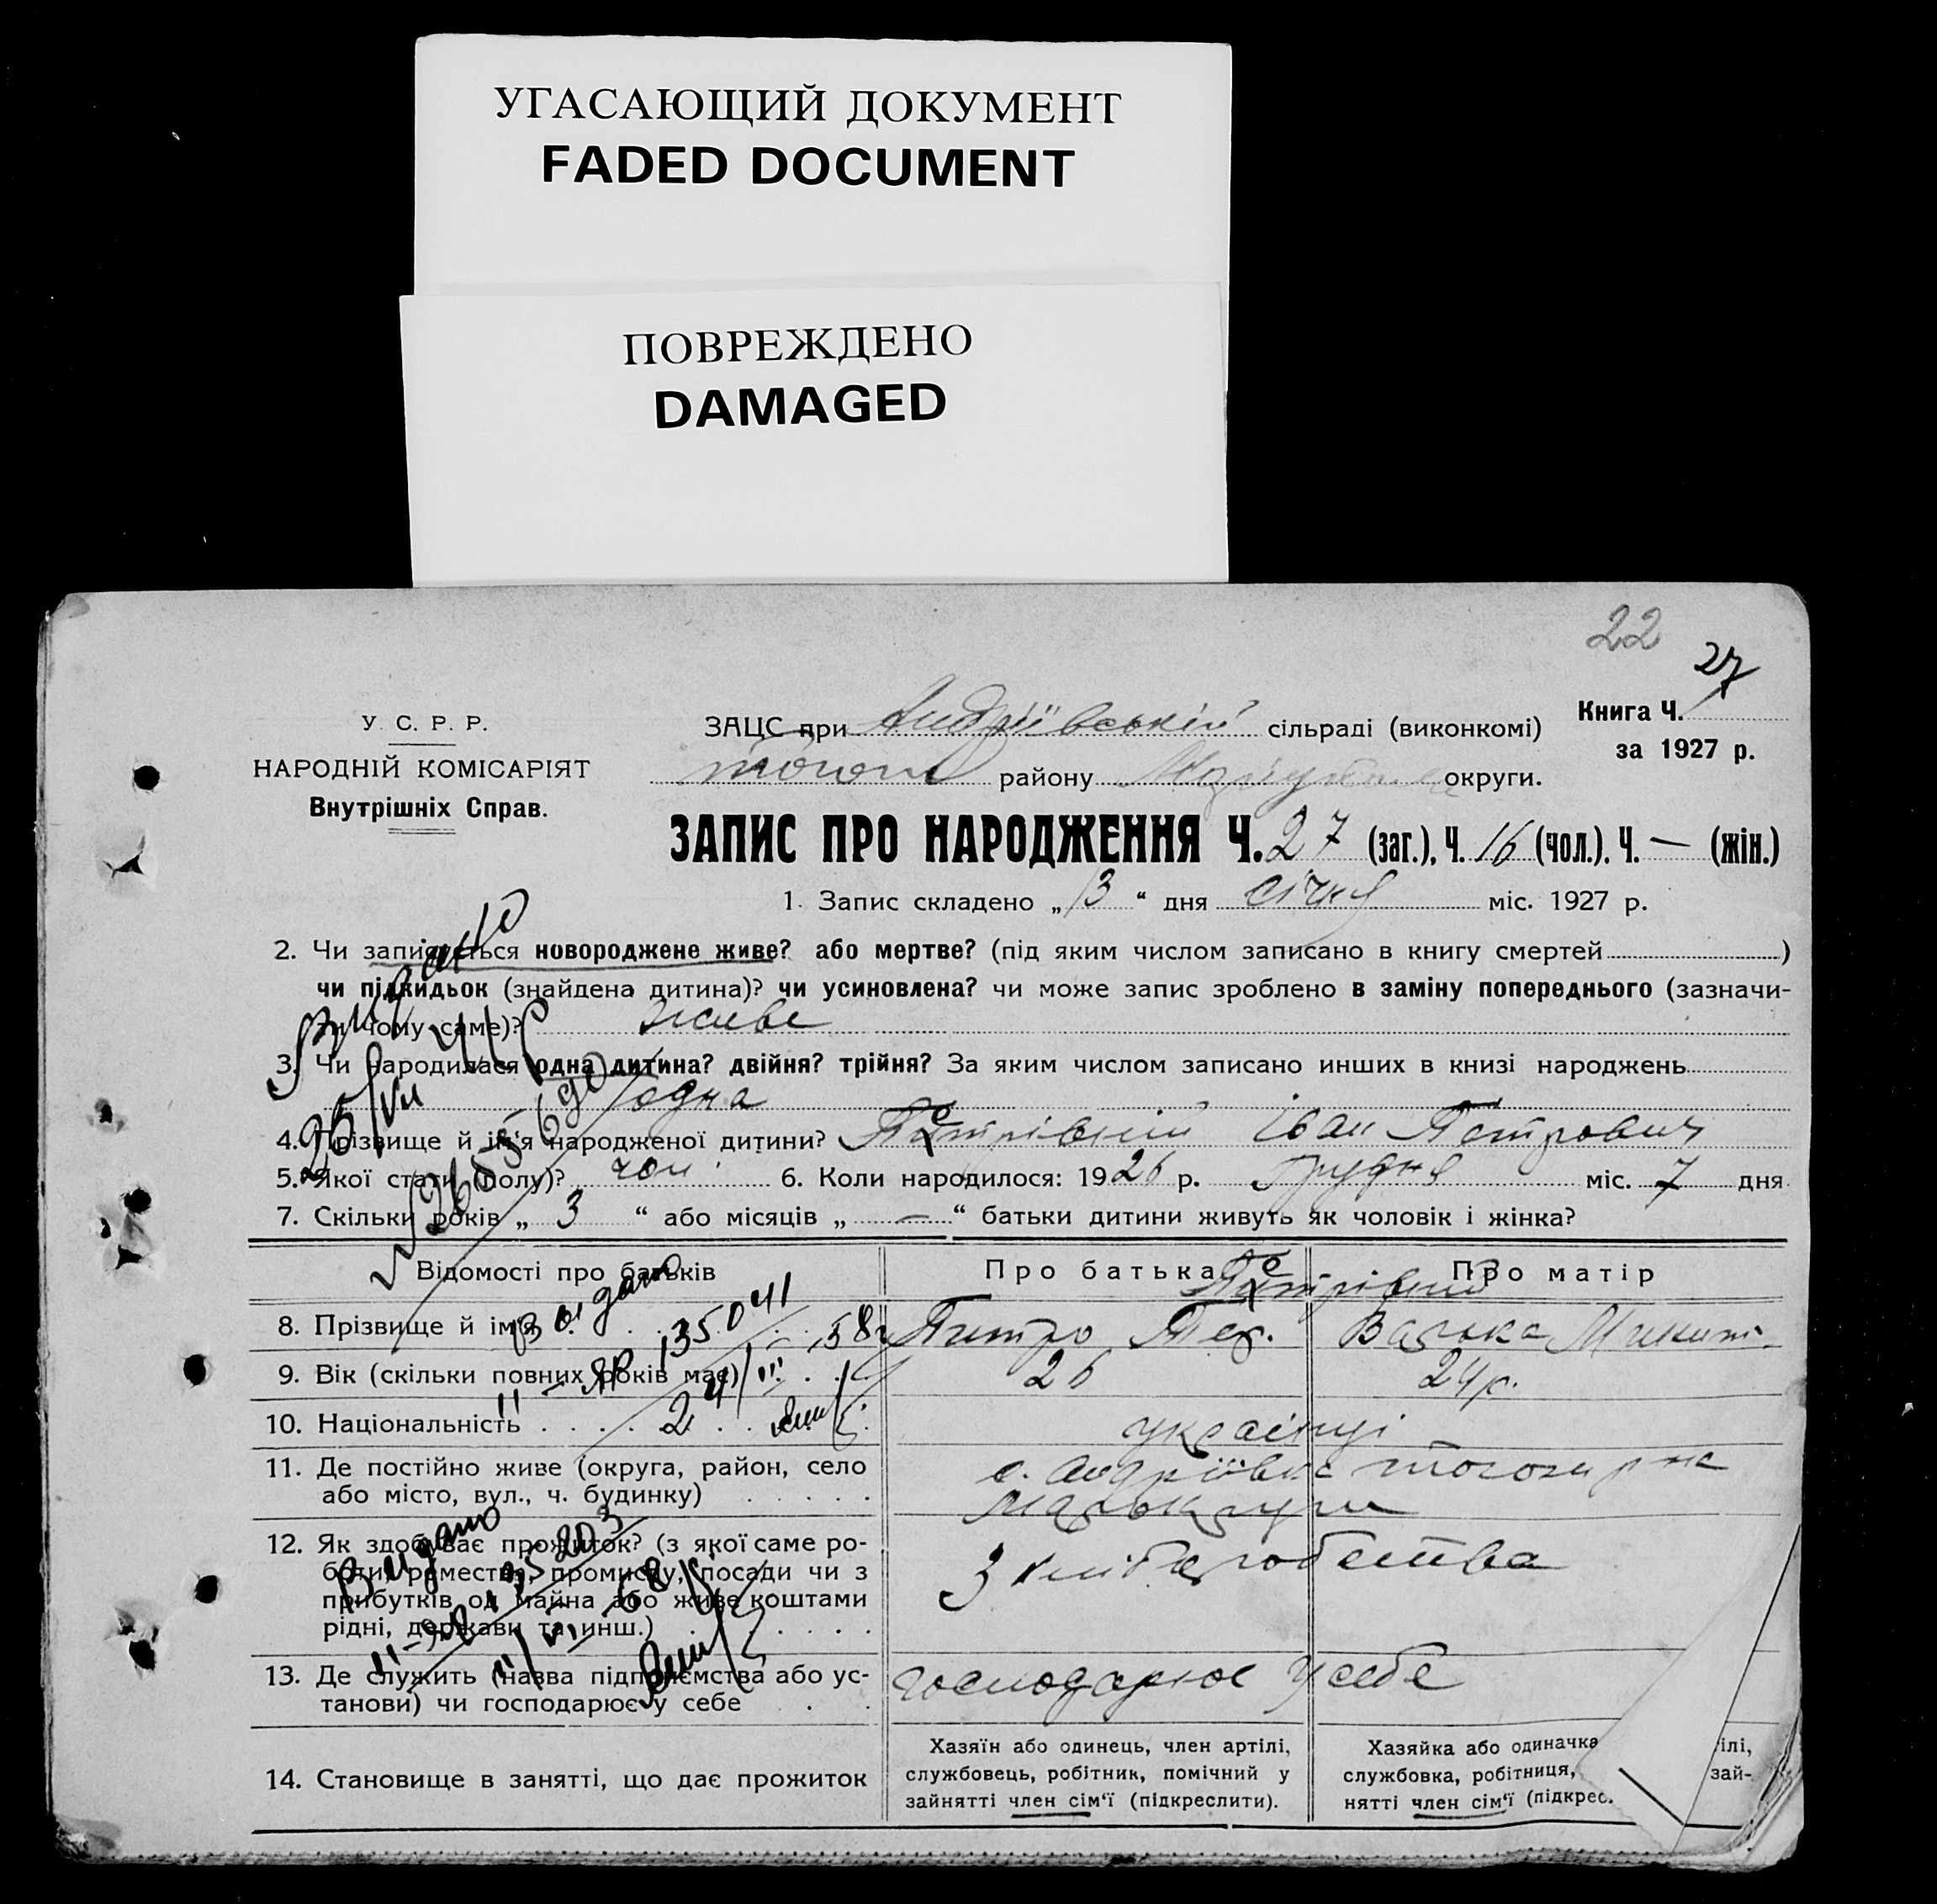 УГАСАЮЩИЙ ДОКУМЕНТ
FADED DOCUMENT
ПОВРЕЖДЕНО
DAMAGED
22
27
У. С. Р. Р.
НАРОДНІЙ КОМІСАРІЯТ
Внутрішніх Справ.
ЗАЦС при Андріївській сільраді (виконкомі)
району округи.
Книга Ч.
за 1927 р.
ЗАПИС ПРО НАРОДЖЕННЯ Ч. 27 (заг.), Ч. 16 (чол.). Ч. — (жін.)
1. Запис складено „ 13 “ дня січня міс. 1927 р.
2. Чи записується новороджене живе? або мертве? (під яким числом записано в книгу смертей )
чи підкидьок (знайдена дитина)? чи усиновлена? чи може запис зроблено в заміну попереднього (зазначи-
ти чому саме)? живе
3. Чи народилася одна дитина? двійня? трійня? За яким числом записано инших в книзі народжень
одна
4. Прізвище й ім'я народженої дитини? Іван Петрович
5. Якої статі (полу)? чол. 6. Коли народилося: 1926 р. грудня міс. 7 дня
7. Скільки років „ 3 “ або місяців „ — “ батьки дитини живуть як чоловік і жінка?
Відомості про батьків Про батька Про матір
8. Прізвище й ім'я Петро Варька
9. Вік (скільки повних років має) 26 24 р.
10. Національність українці
11. Де постійно живе (округа, район, село с. Андріївка
або місто, вул., ч. будинку)
12. Як здобуває прожиток? (з якої саме ро-
боти, ремества, промислу, посади чи з
прибутків од майна або живе коштами
рідні, держави та инш.) З хліборобства
13. Де служить (назва підприємства або ус-
танови) чи господарює у себе господарює у себе
14. Становище в занятті, що дає прожиток
Хазяїн або одинець, член артілі,
службовець, робітник, помічний у
зайнятті член сім'ї (підкреслити).
Хазяйка або одиначка ілі,
службовка, робітниця, зай-
нятті член сім'ї (підкрес.
Видано
Видано
135041
24/III
Видано